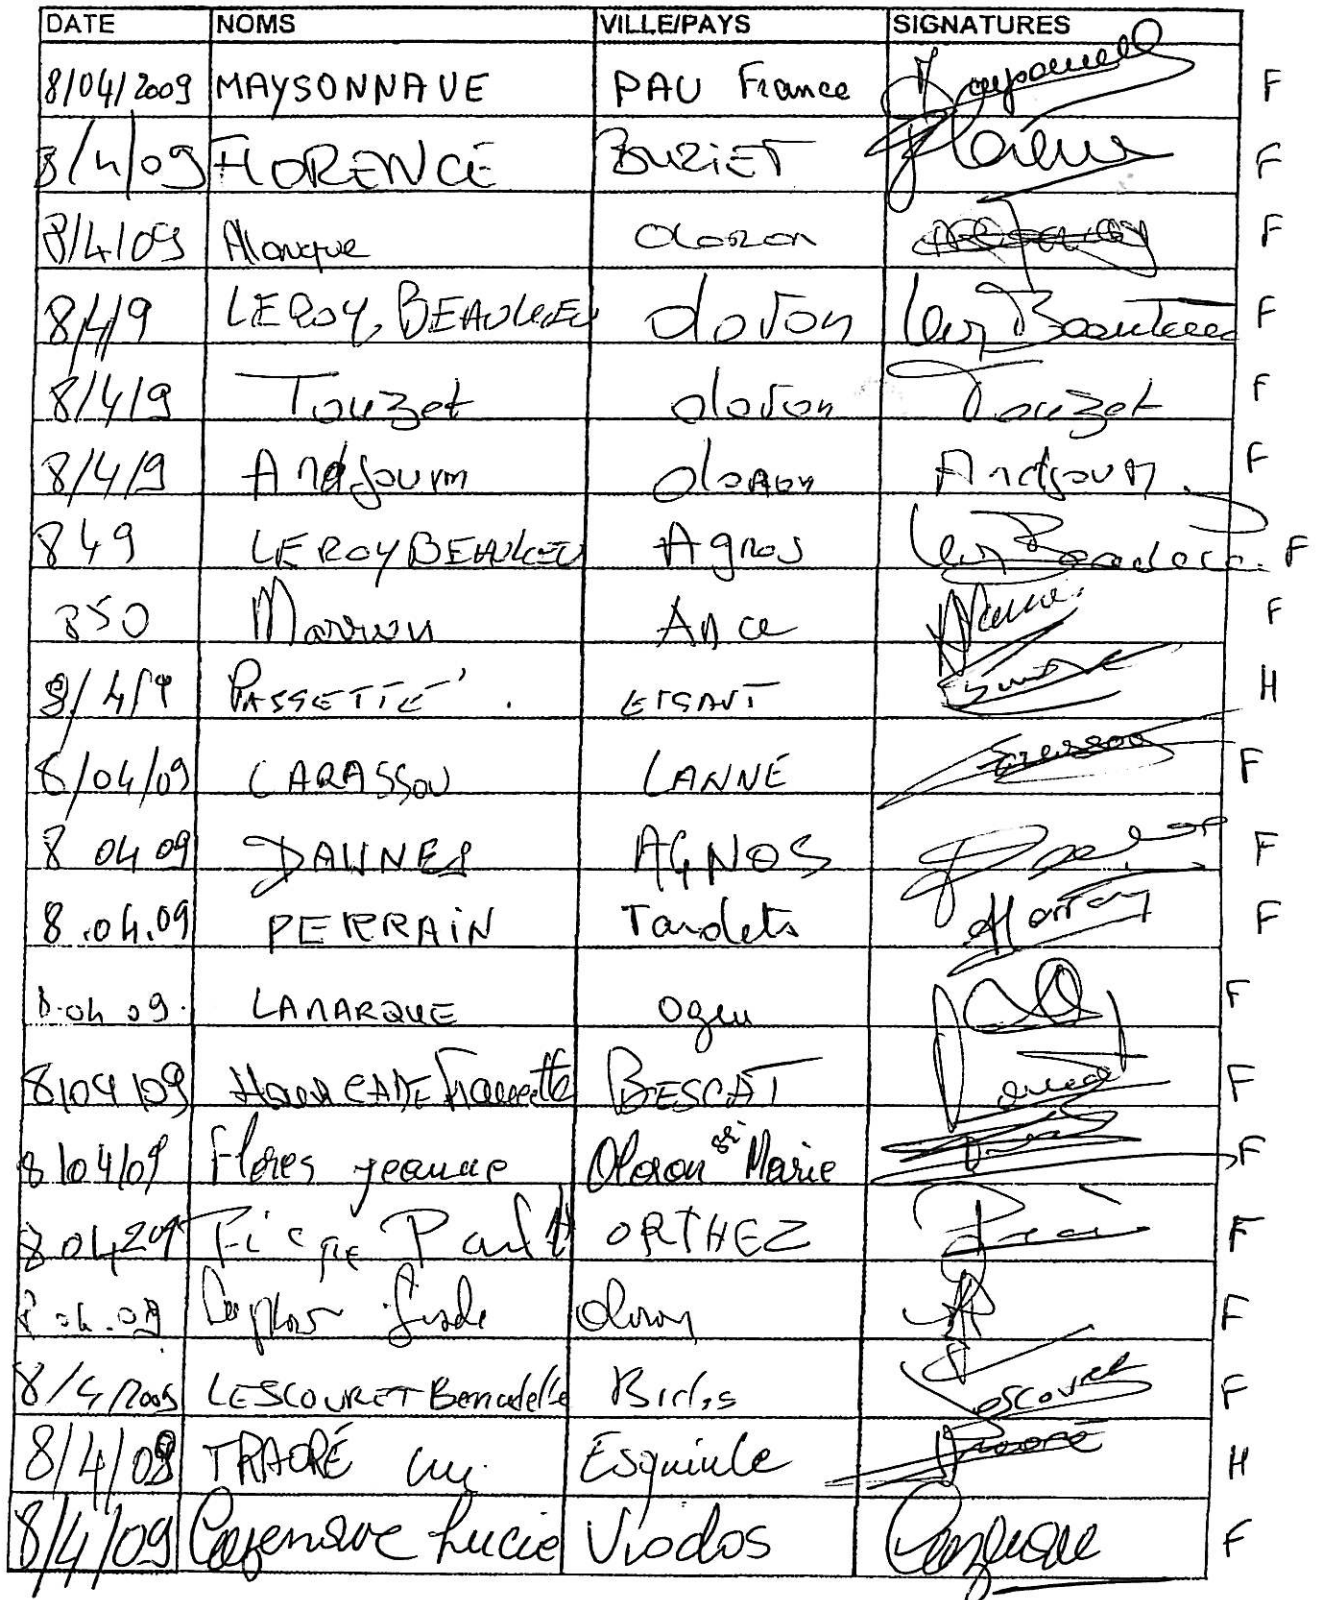 DATE NOMS VILLE/PAYS SIGNATURES
8/04/2009 MAYSONNAVE PAU France F
8/4/09 FLORENCE BUZIET F
8/4/09 Manque Oloron F
8/4/9 LEROY, BEAULIEU oloron Leroy Beaulieu F
8/4/9 Touzet oloron Touzet F
8/4/9 Andjourn oloron Andjourn. F
849 LEROY BEAULIEU Agnos Leroy Beaulieu F
850 Ance F
8/4/9 PASSETTE H
8/04/09 CARASSOU LANNE F
8 04 09 AGNOS F
8.04.09 PERRAIN Tardets F
8.04 09. LAMARQUE Ogeu F
8/04/09 BESCAT F
8/04/09 Flores Jeanne Oloron Ste Marie F
ORTHEZ F
8.04.09 oloron F
8/4/2009 LESCOURET Bernadette Lescouret F
8/4/09 TRAORÉ Esquiule Traoré H
8/4/09 Cazenave Lucie Viodos Cazenave F